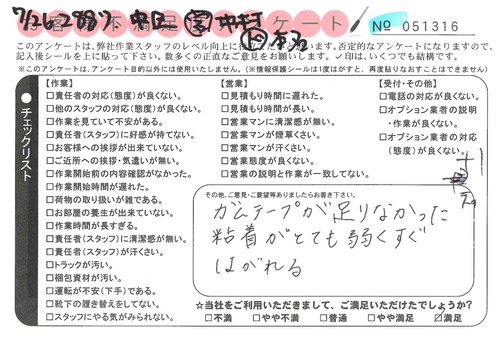 7/26 2887
お客様不満足度アンケート
№ 051316
このアンケートは、弊社作業スタッフのレベル向上に役立てたいと思います。否定的なアンケートになりますので、
記入後シールを上に貼って下さい。数多くの正直なご意見をお願いします。✓印は、いくつでも結構です。
※このアンケートは、アンケート目的以外には使用いたしません。(※情報保護シールは1度はがすと、再度貼りなおすことはできません)
チェックリスト
【作業】
□責任者の対応(態度)が良くない。
□他のスタッフの対応(態度)が良くない。
□作業を見ていて不安がある。
□責任者(スタッフ)に好感が持てない。
□お客様への挨拶が出来ていない。
□ご近所への挨拶・気遣いが無い。
□作業開始前の内容確認がなかった。
□作業開始時間が遅れた。
□荷物の取り扱いが雑である。
□お部屋の養生が出来ていない。
□作業時間が長すぎる。
□責任者(スタッフ)に清潔感が無い。
□責任者(スタッフ)が汗くさい。
□トラックが汚い。
□梱包資材が汚い。
□運転が不安(下手)である。
□靴下の履き替えをしてない。
□スタッフにやる気がみられない。
【営業】
□見積もり時間に遅れた。
□見積もり時間が長い。
□営業マンに清潔感が無い。
□営業マンが煙草くさい。
□営業マンが汗くさい。
□営業態度が良くない。
□営業の説明と作業が一致してない。
【受付・その他】
□電話の対応が良くない。
□オプション業者の説明
・作業が良くない。
□オプション業者の対応
(態度)が良くない。
その他、ご意見・ご要望等ありましたらお書き下さい。
ガムテープが足りなかった
粘着がとても弱くすぐ
はがれる
☆当社をご利用いただきまして、ご満足いただけたでしょうか?
□不満 □やや不満 □普通 □やや満足 ☑満足